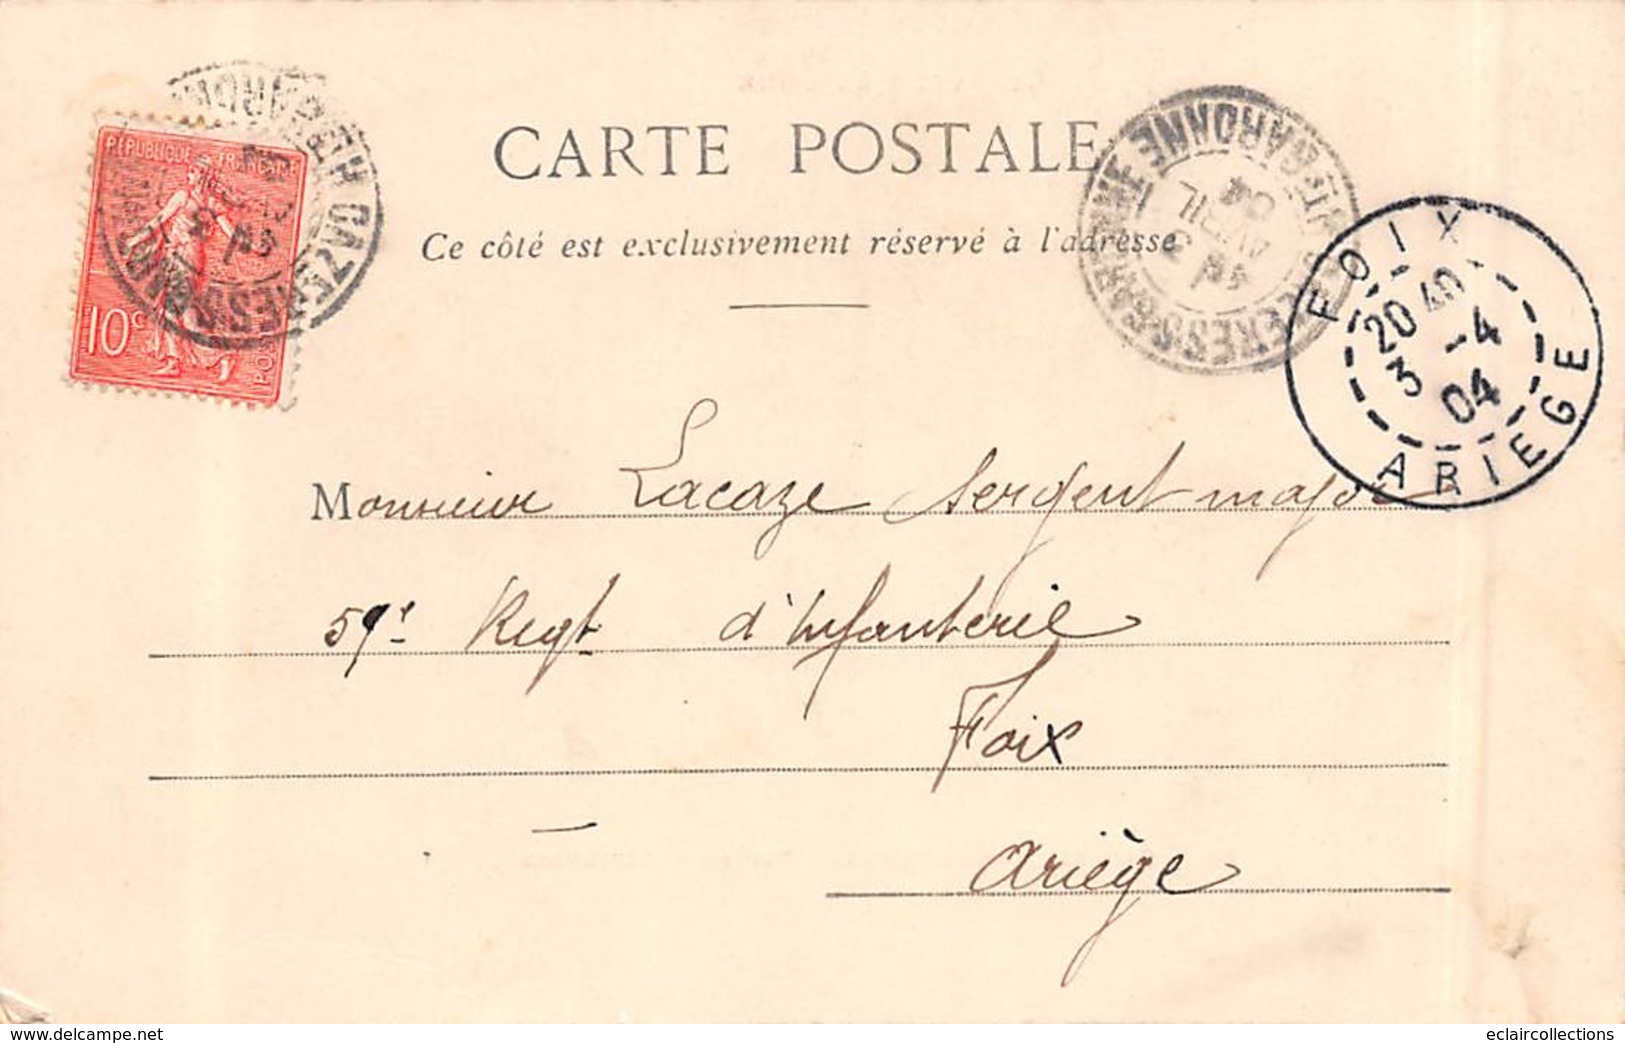 CARTE POSTALE
Ce côté est exclusivement réservé à l'adresse
RÉPUBLIQUE FRANÇAISE
10c
POSTES
CAZERES-S-GARONNE
HTE GARONNE
AVRIL
04
FOIX
20 40
3 -4
04
ARIEGE
Monsieur Lacaze Sergent major
59e Regt d'Infanterie
Foix
Ariège
delcampe.net
eclaircollections